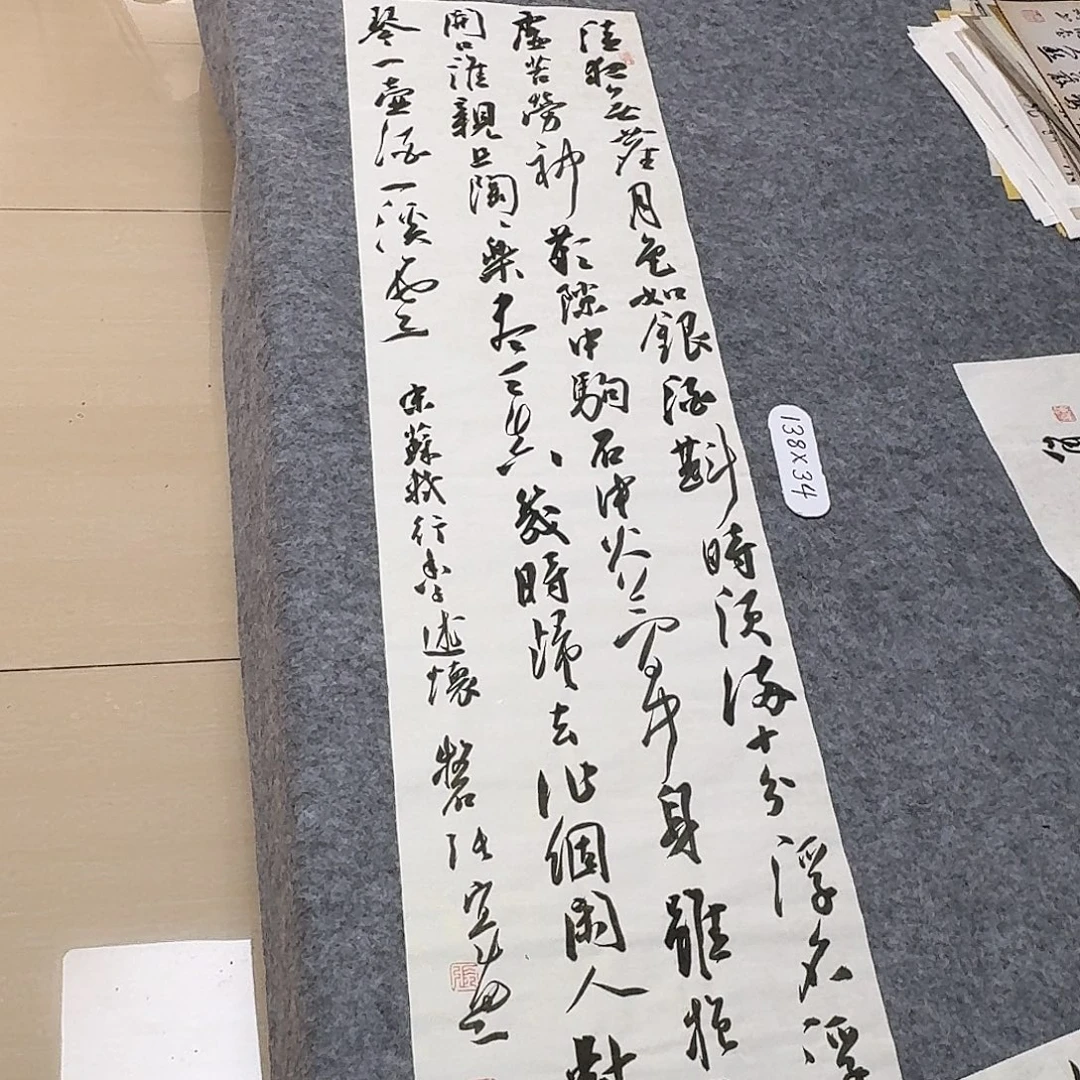 清夜无尘月色如银酒斟時須满十分浮名浮
虚苦勞神歎隙中駒石中火夢中身雖抱
開口誰親且陶、樂盡天真幾時歸去作個閑人對
琴一壺酒一溪雲
宋蘇軾行香子述懷
張
138X34